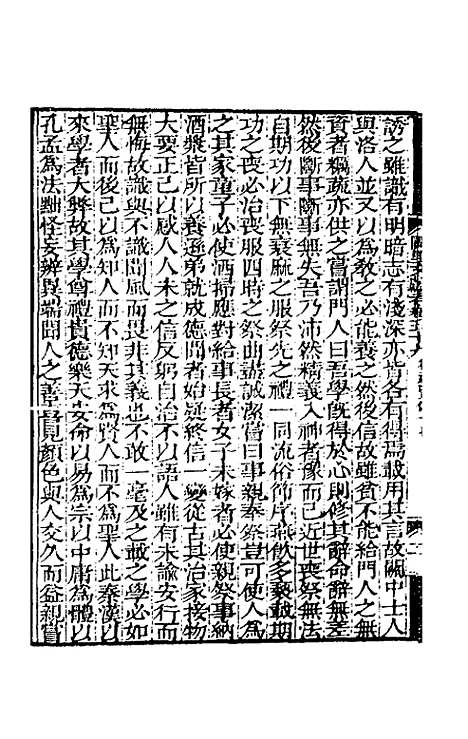 誘之雖識有明暗志有淺深亦皆各有得焉載用其言故關中士人
與洛人並又以為教之必能養之然後信故雖貧不能給門人之無
資者糲疏亦供之嘗謂門人曰吾學既得於心則修其辭命辭無差
然後斷事斷事無失吾乃沛然精義入神者豫而已近世喪祭無法
自期功以下無衰麻之服祭先之禮一同流俗節序燕飲多褻載期
功之喪必治喪服四時之祭曲盡誠潔嘗曰事親奉祭豈可使人為
之其家童子必使洒掃應對給事長者女子未嫁者必使親祭事納
酒漿皆所以養遜弟就成德聞者始疑終信一變從古其治家接物
大要正己以感人人未之信反躬自治不以語人雖有未諭安行而
無悔故識與不識聞風而畏非其義也不敢一毫及之載之學必如
聖人而後已以為知人而不知天求為賢人而不為聖人此秦漢以
來學者大弊故其學尊禮貴德樂天安命以易為宗以中庸為體以
孔孟為法黜怪妄辨異端聞人之善喜見顏色與人交久而益親嘗